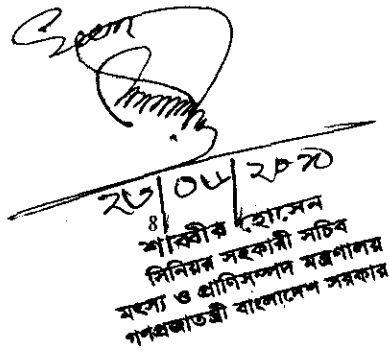 Seen
শাব্বীর হোসেন
সিনিয়র সহকারী সচিব
মৎস্য ও প্রাণিসম্পদ মন্ত্রণালয়
গণপ্রজাতন্ত্রী বাংলাদেশ সরকার